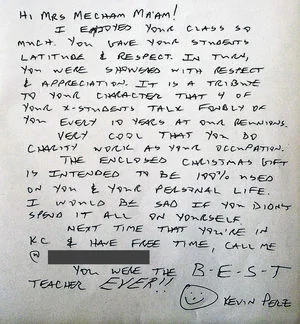 HI MRS MECHAM MA'AM!
I ENJOYED YOUR CLASS SO
MUCH. YOU GAVE YOUR STUDENTS
LATITUDE & RESPECT. IN TURN,
YOU WERE SHOWERED WITH RESPECT
& APPRECIATION. IT IS A TRIBUTE
TO YOUR CHARACTER THAT 4 OF
YOUR X-STUDENTS TALK FONDLY OF
YOU EVERY 10 YEARS AT OUR REUNIONS.
VERY COOL THAT YOU DO
CHARITY WORK AS YOUR OCCUPATION.
THE ENCLOSED CHRISTMAS GIFT
IS INTENDED TO BE 100% USED
ON YOU & YOUR PERSONAL LIFE.
I WOULD BE SAD IF YOU DIDN'T
SPEND IT ALL ON YOURSELF.
NEXT TIME THAT YOU'RE IN
KC & HAVE FREE TIME, CALL ME
@
YOU WERE THE B-E-S-T
TEACHER EVER!!
KEVIN PERZ